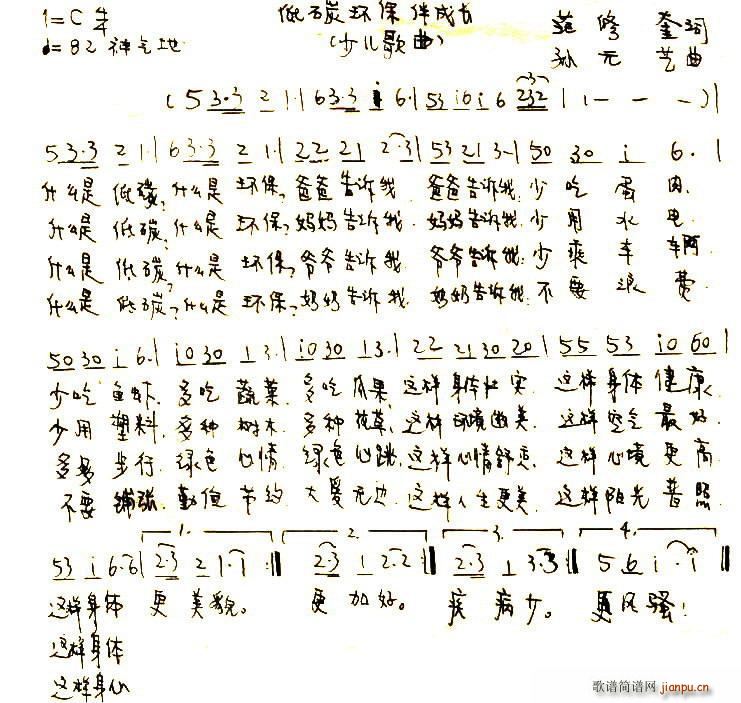 1=C 低碳环保伴成长 范修奎词
♩=82 神气地 (少儿歌曲) 孙元艺曲
(5 3·3 2 1·| 6 3·3 i 6·| 53 i0 i 6 232 | 1 - - -)|
5 3·3 2 1·| 6 3·3 2 1·| 22 21 2·3| 53 21 3·| 50 30 i 6·|
什么是 低碳,什么是 环保,爸爸告诉我 爸爸告诉我:少 吃 蛋 肉,
什么是 低碳,什么是 环保,妈妈告诉我 妈妈告诉我:少 用 水 电
什么是 低碳,什么是 环保,爷爷告诉我 爷爷告诉我:少 乘 车 辆
什么是 低碳?什么是 环保,奶奶告诉我 奶奶告诉我:不 要 浪 费
50 30 i 6·| i0 30 1 3·| i0 30 1 3·| 22 21 30 20| 55 53 i0 60|
少吃 鱼虾,多吃 蔬菜,多吃 瓜果,这样 身体壮实 这样 身体 健康,
少用 塑料,多种 树木,多种 花草,这样 环境幽美,这样 空气 最好,
多多 步行,绿色 心情 绿色 心跳,这样心情舒爽,这样 心境 更 高
不要 铺张,勤俭 节约 大爱无边,这样人生更美,这样 阳光 普照
1. 2. 3. 4.
53 i 6·6| 2·3 2 1·1 :‖ 2·3 1 2·2 :‖ 2·3 1 3·3 :‖ 5 6 i·i ‖
这样身体 更 美貌。 更 加好。 疾 病少。 更风骚!
这样身体
这样身心
歌谱简谱网 jianpu.cn